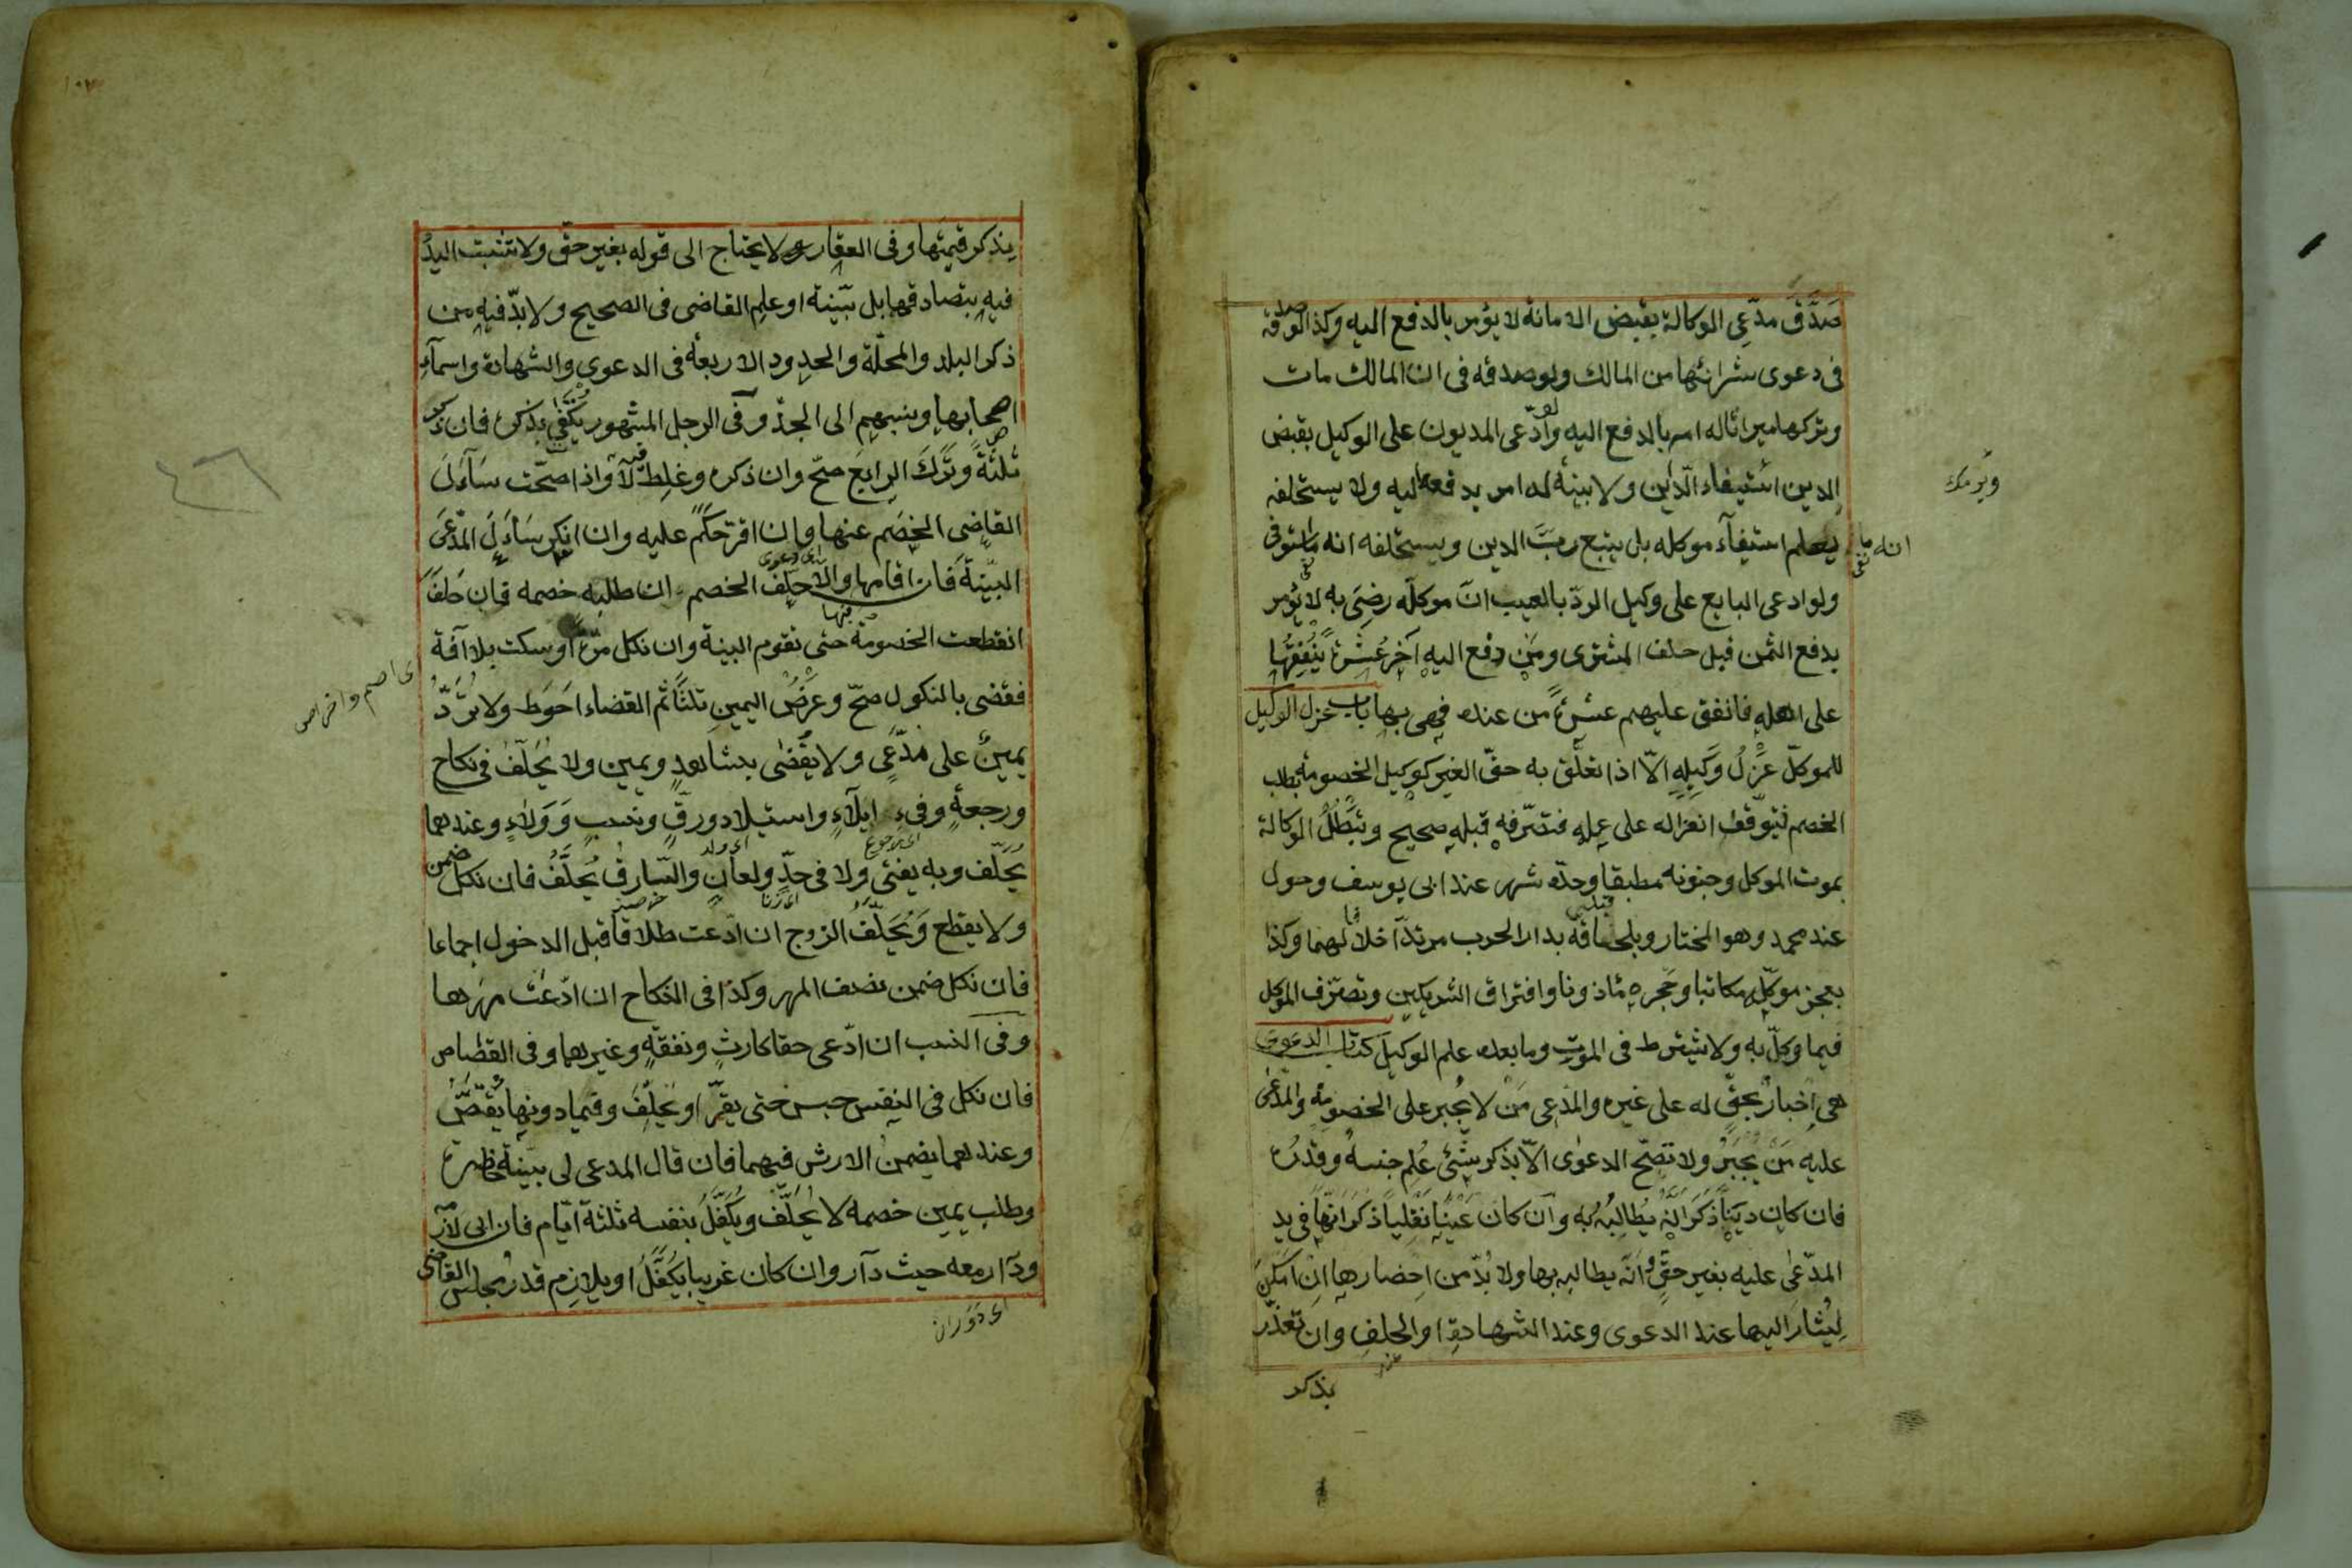 صَدَّقَ مدّعى الوكالة بقبض الامانة لا يؤمر بالدفع اليه وكذا لو صدقه
فى دعوى شرائها من المالك ولو صدقه فى ان المالك مات
وتركها ميراثا له امر بالدفع اليه ولو ادّعى المديون على الوكيل بقبض
الدين استيفاء الدّاين ولا بينة له امر بدفعه اليه ولا يستحلفه
انه ما يعلم استيفآء موكله بل يتبع ربّ الدين ويستحلفه انه ما استوفى
ولو ادعى البايع على وكيل الردّ بالعيب انّ موكلَه رضِىَ به لا يؤمر
بدفع الثمن قبل حلف المشترى ومَن دفع اليه آخَر عشرةً يُنْفِقُها
على اهله فانفق عليهم عشرةً من عنده فهى بها باب عزل الوكيل
للموكّل عَزْلُ وَكِيلِهِ الّا اذا تعلّق به حقّ الغير كوكيل الخصومة بطلب
الخصم فيتوقف انعزاله على علمه فتصرّفه قبله صحيح وتَبْطُلُ الوكالة
بموت الموكل وجنونه مطبقا وحدّه شهر عند ابى يوسف وحول
عند محمد وهو المختار وبلحاقه بدار الحرب مرتدّا خلافا لهما وكذا
بعجز موكّله مكاتبا وحَجره مأذونا وافتراق الشريكين وتصرّف الموكل
فيما وكّل به ولا يشترط فى الموت وما بعده علم الوكيل كتاب الدعوى
هى اِخبارٌ بحقٍّ له على غيره والمدّعى مَنْ لا يُجبر على الخصومة والمدّعى
عليه مَنْ يُجْبَرُ ولا تصِحّ الدعوى الّا بذكر شئ عُلِم جنسهُ وقدرُه
فان كان دَيْناً ذَكَرَ اَنَّهُ يُطَالِبُهُ بِه وَاِن كان عَيْنًا نَقْلِياً ذَكَرَ اَنَّها فى يد
المدّعى عليه بغير حقٍّ وَاَنّه يطالبه بها ولا بُدّ من اِحضارها اِن اَمكنَ
لِيُشَارَ اليها عند الدعوى وعند الشهادة او الحلف وان تعذّر
يذكر
يذكر قيمتها وفى العقار لا يحتاج الى قوله بغير حقّ ولا تثبت اليدُ
فيه بتصادقهما بل ببّينة او علم القاضى فى الصحيح ولا بدّ فيه من
ذكر البلد والمحلّة والحدود الاربعة فى الدعوى والشهادة واسمآءِ
اصحابها ونسبهم الى الجدّ وفى الرجل المشهور يُكْتَفى بذكره فان ذكر
ثلثةً وتَرَكَ الرابعَ صحّ وان ذكره وغلِطَ فيه لا واذا صحّت سَأَلَ
القاضى الخصَم عنها فان اقرّ حَكَمَ عليه وان انكر سَأَلَ المدّعىَ
البيّنةَ فَان اقامها والّا حلّف الخصم ان طلبه خصمه فان حَلفَ
انقطعت الخصومة حتى تقوم البينة وان نكل مرّةً او سكت بلا آفة
اى اصم واخرس
فقضى بالنكول صحّ وعَرْضُ اليمين ثلثاً ثم القضاء احَوط ولا تُرَدّ
يمينٌ على مدّعٍى ولا يُقْضٰى بشاهدٍ ويمين ولا يُحَلّفُ فى نكاح
ورجعةٍ وفىءِ ايلآءٍ واستيلاد ورقّ ونسبٍ وَوَلاءٍ وعندهما
يُحَلّف وبه يفتٰى ولا فى حدٍّ ولعانٍ والسّارق يُحَلَّفُ فان نكل ضمن
ولا يقطع وَيُحَلّفُ الزوج ان ادّعت طلاقا قبل الدخول اجماعا
فان نكل ضمن نصف المهر وكذا فى النكاح ان ادّعَتْ مهرها
وفى النسب ان ادّعى حقا كارثٍ ونفقةٍ وغيرهما وفى القصاص
فان نكل فى النفس حبس حتى يقرّ او يَحْلِفَ وفيما دونها يُقْتَصُّ
وعندهما يضمن الارش فيهما فان قال المدعى لى بيّنة حاضرة
وطلب يمين خصمه لا يُحَلّف ويُكَفَّلُ بنفسه ثلثة ايّام فان ابى لازمه
ودَار معه حيث دآر وان كان غريبا يُكَفَّلُ او يلازم قدر مجلس القاضى
اى دَوَران